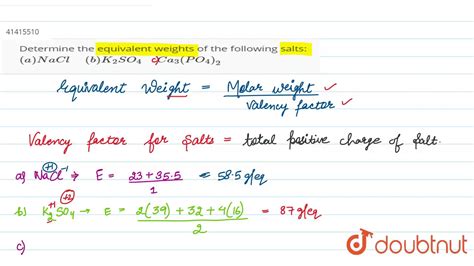 41415510
Determine the equivalent weights of the following salts:
(a)NaCl (b)K₂SO₄ (c)Ca₃(PO₄)₂
Equivalent Weight = Molar weight ✓ / Valency factor ✓
Valency factor for salts = total positive charge of salt.
a) Na⁺¹Cl⁻¹ → E = 23 + 35.5 / 1 = 58.5 g/eq
b) K₂⁺¹SO₄ (+2) → E = 2(39) + 32 + 4(16) / 2 = 87 g/eq
c)
doubtnut